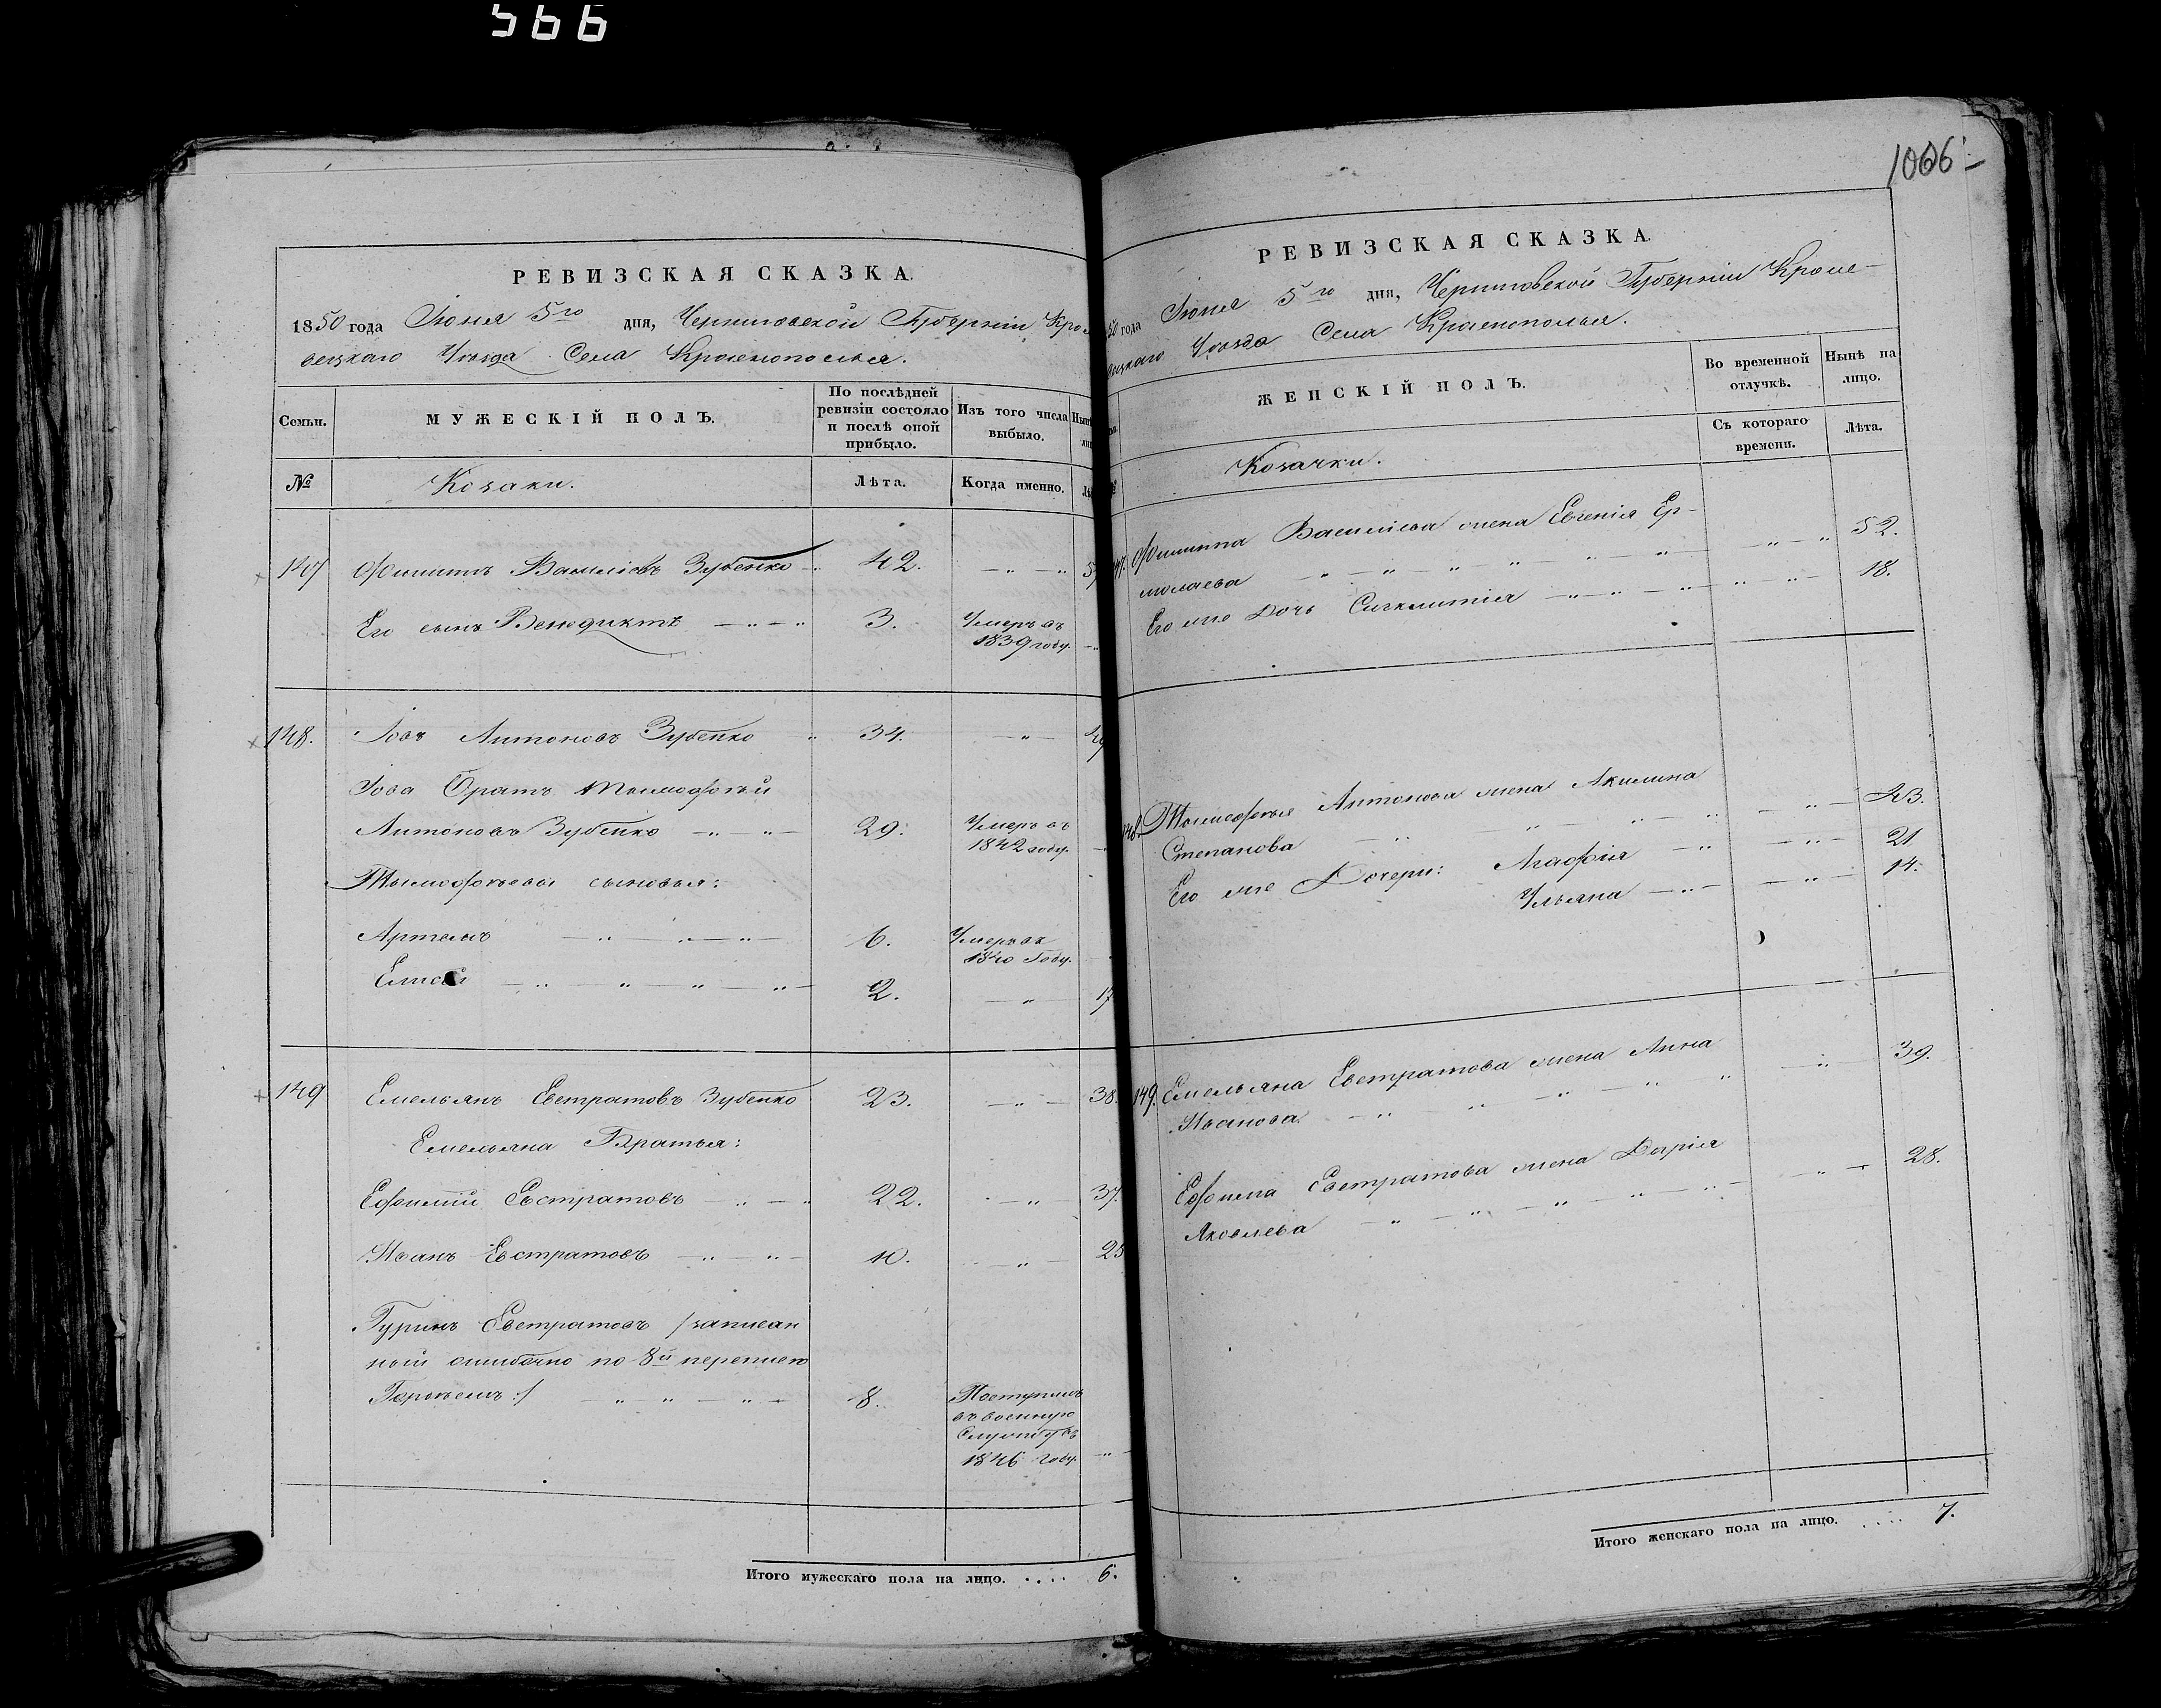 566
РЕВИЗСКАЯ СКАЗКА.
1850 года Іюня 5го дня, Черниговской Губерніи Кроле
вецкаго Уѣзда Села Краснополья.
Семьи.
МУЖЕСКІЙ ПОЛЪ.
По послѣдней
ревизіи состояло
и послѣ оной
прибыло.
Изъ того числа
выбыло.
№
Козаки.
Лѣта.
Когда именно.
147 Филиппъ Васильевъ Зубенко 42. 57
Его сынъ Венедиктъ 3. Умеръ въ
1839 году.
148. Іовъ Антоновъ Зубенко 34. 49
Іова Братъ Тимофѣй
Антоновъ Зубенко 29. Умеръ въ
1842 году.
Тимофѣевы сыновья:
Артемъ 6. Умеръ въ
1840 году.
Елисѣй 2. 17
149 Емельянъ Евстратовъ Зубенко 23. 38.
Емельяна Братья:
Ефимій Евстратовъ 22. 37.
Иванъ Евстратовъ 10. 25
Гуринъ Евстратовъ /записан
ный ошибочно по 8й переписи
:/ 8. Поступилъ
въ военную
Службу въ
1846 году.
Итого мужескаго пола на лицо. .... 6.
1006
РЕВИЗСКАЯ СКАЗКА.
50 года Іюня 5го дня, Черниговской Губерніи Кроле-
вецкаго Уѣзда Села Краснополья.
ЖЕНСКІЙ ПОЛЪ.
Во временной
отлучкѣ.
Нынѣ на
лицо.
Съ котораго
времени.
Лѣта.
Козачки.
147. Филиппа Васильева жена Евгенія Ер-
молаева 52.
Его же Дочь Сигклитикія 18.
148. Тимофѣя Антонова жена Акилина
Степанова 43.
Его же Дочери: Агафія 21
Ульяна 14.
149. Емельяна Евстратова жена Анна
Иванова 39.
Ефима Евстратова жена Дарія
Яковлева 28.
Итого женскаго пола на лицо. .... 7.